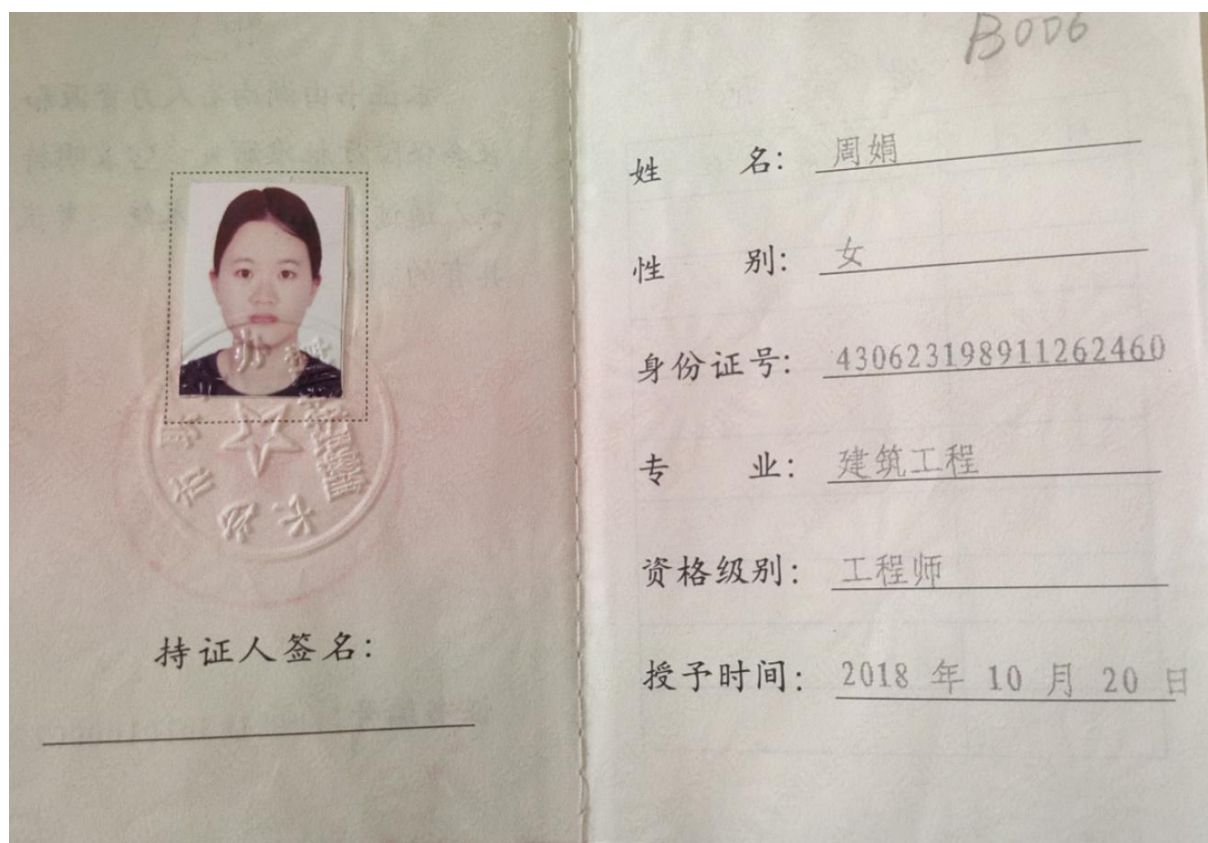 B006
姓 名: 周娟
性 别: 女
身份证号: 430623198911262460
专 业: 建筑工程
资格级别: 工程师
授予时间: 2018 年 10 月 20 日
持证人签名: